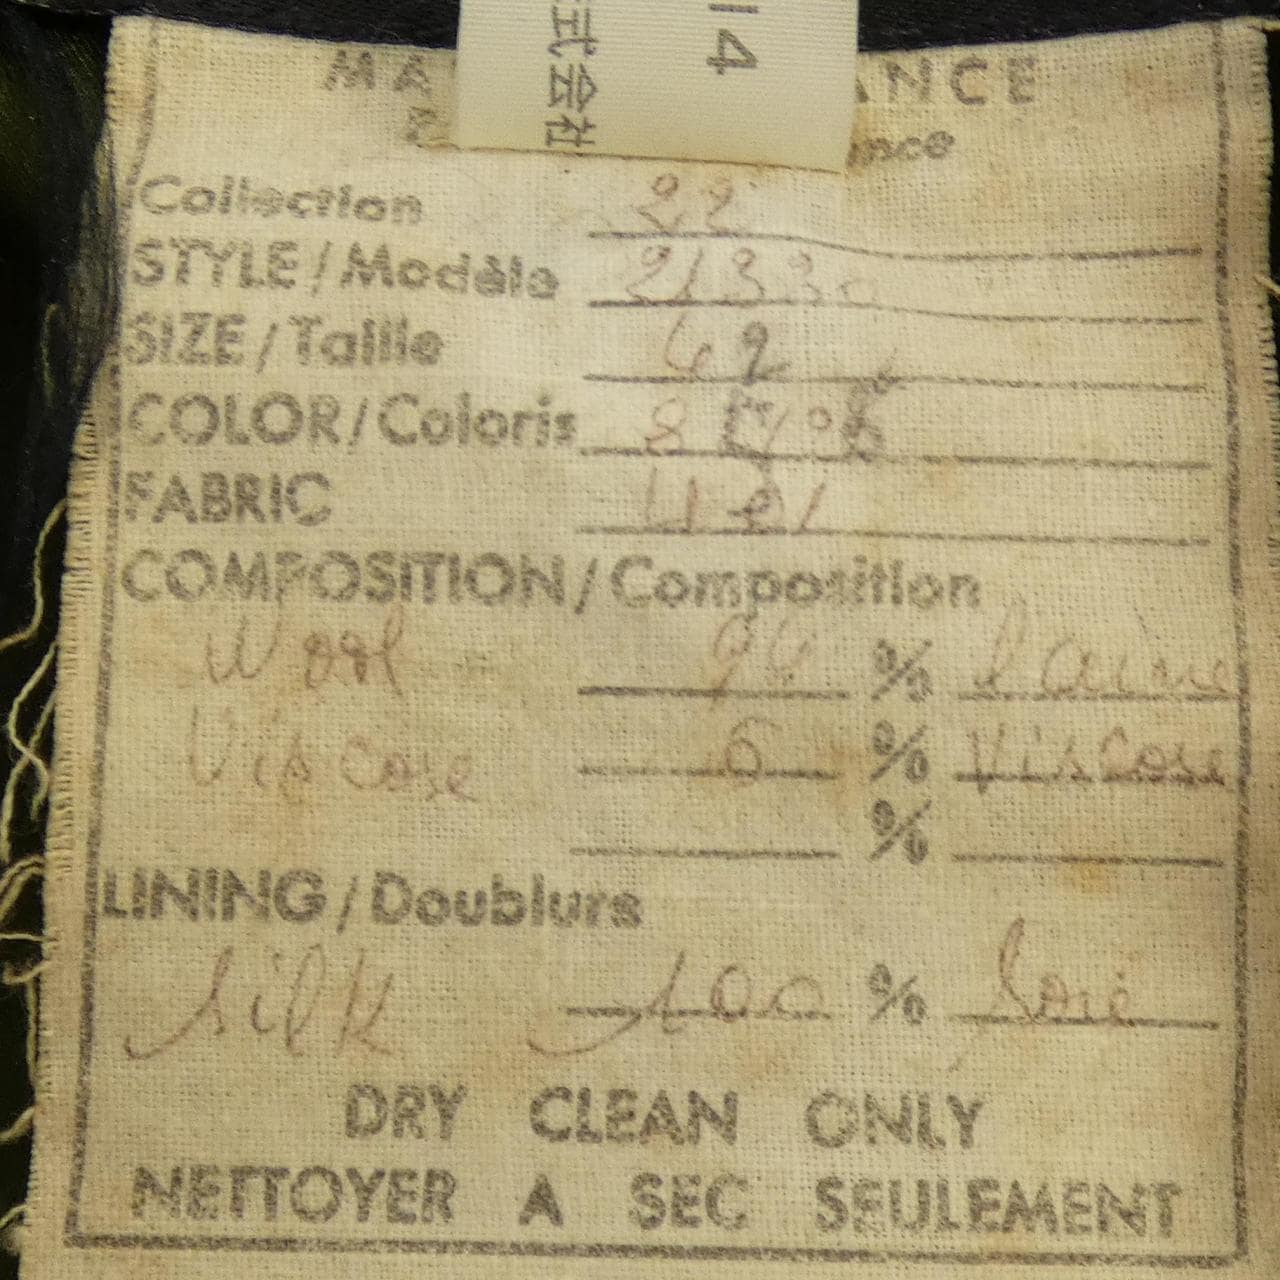 14
式会社
MA ANCE
nce
Collection 22
STYLE / Modèle 21330
SIZE / Taille 42
COLOR / Coloris
FABRIC
COMPOSITION / Composition
Wool 94 % Laine
Viscose 6 % Viscose
%
LINING / Doublure
Silk 100 % Soie
DRY CLEAN ONLY
NETTOYER A SEC SEULEMENT